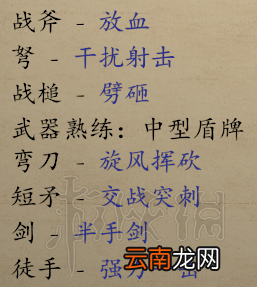 战斧 - 放血
弩 - 干扰射击
战槌 - 劈砸
武器熟练: 中型盾牌
弯刀 - 旋风挥砍
短矛 - 交战突刺
剑 - 半手剑
徒手 - 强力一击
云南龙网